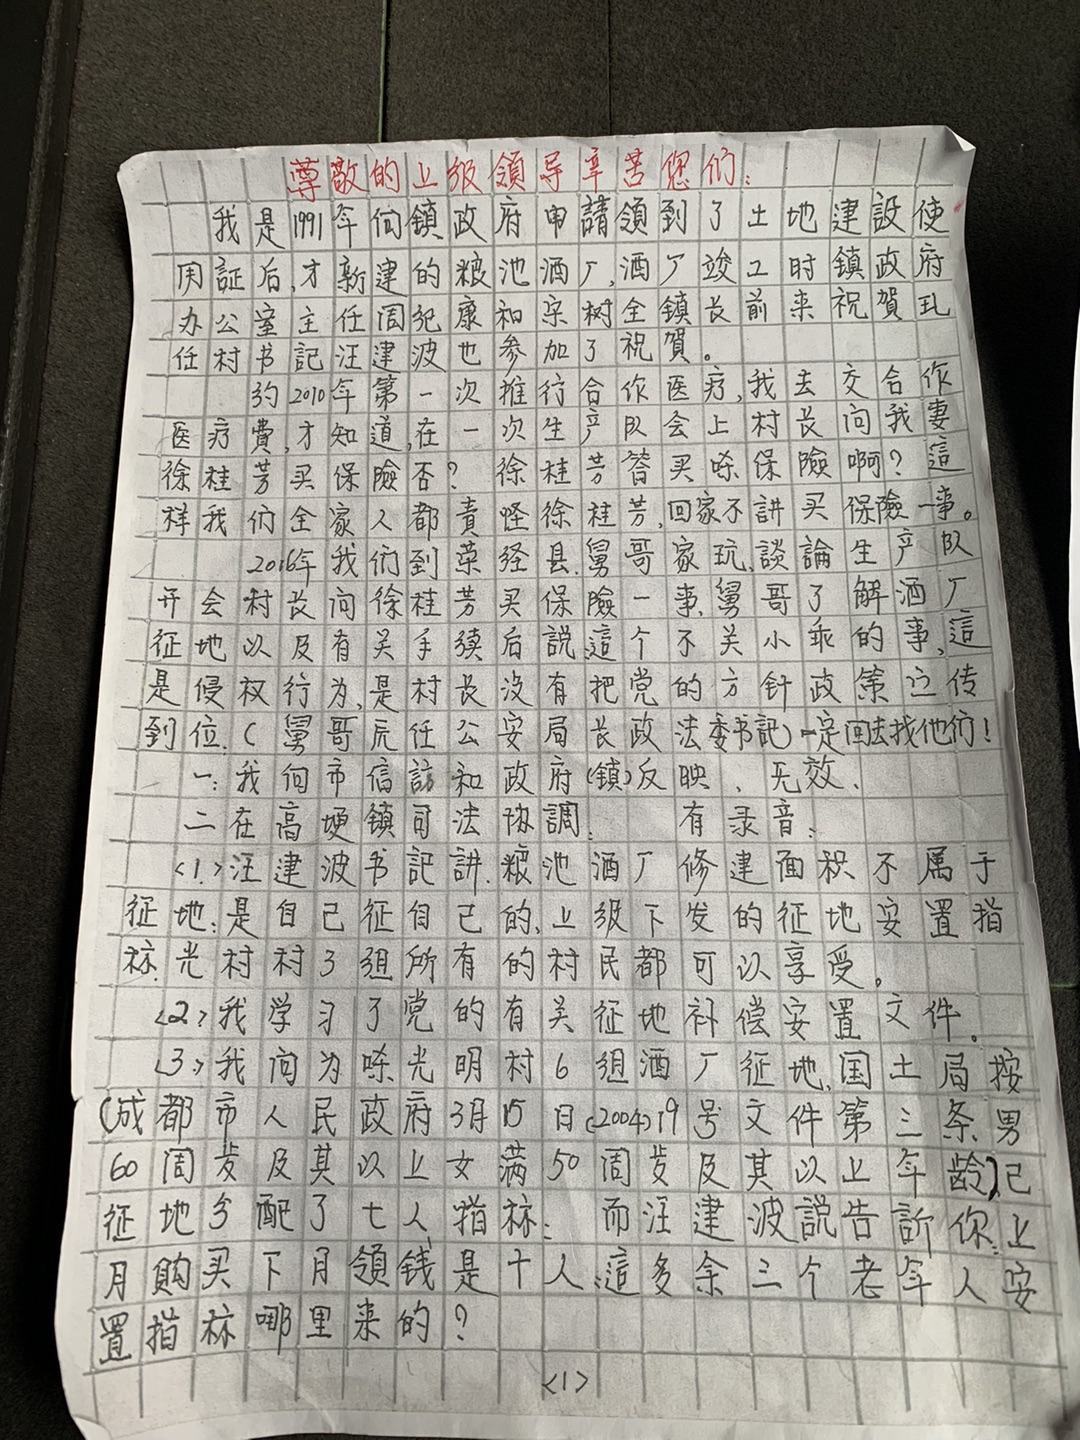 尊敬的上级領导辛苦您们:
我是1991年向鎮政府申請領到了土地建設使
用証后,才新建的粮池酒厂,酒厂竣工时鎮政府
办公室主任周纪康和宋树全鎮长前来祝賀现
任村书記汪建波也参加了祝賀。
约2010年第一次推行合作医疗,我去交合作
医疗費,才知道,在一次生产队会上村长问我妻
徐桂芳买保險否?徐桂芳答买啥保險啊?這
样我们全家人都責怪徐桂芳,回家不講买保險一事。
2016年我们到荣经县舅哥家玩,談論生产队
开会村长问徐桂芳买保險一事,舅哥了解酒厂
征地以及有关手续后説這个不关小乖的事,這
是侵权行为,是村长没有把党的方针政策宣传
到位.(舅哥原任公安局长政法委书記)一定回去找他们!
一:我向市信訪和政府(鎮)反映、无效、
二在高埂鎮司法协調: 有录音:
<1.>汪建波书記講.粮池酒厂修建面积不属于
征地:是自己征自己的,上级下发的征地安置指
标.光村村3组所有的村民都可以享受。
<2>我学习了党的有关征地补偿安置文件。
<3>我问为啥光明村6组酒厂征地,国土局按
(成都市人民政府3月15日(2004)19号文件第三条男
60周岁及其以上女满50周岁及其以上年龄)已
征地分配了七人指标: 而汪建波説告訴你:上
月購买下月領钱是十人:這多余三个老年人安
置指标哪里来的?
<1>